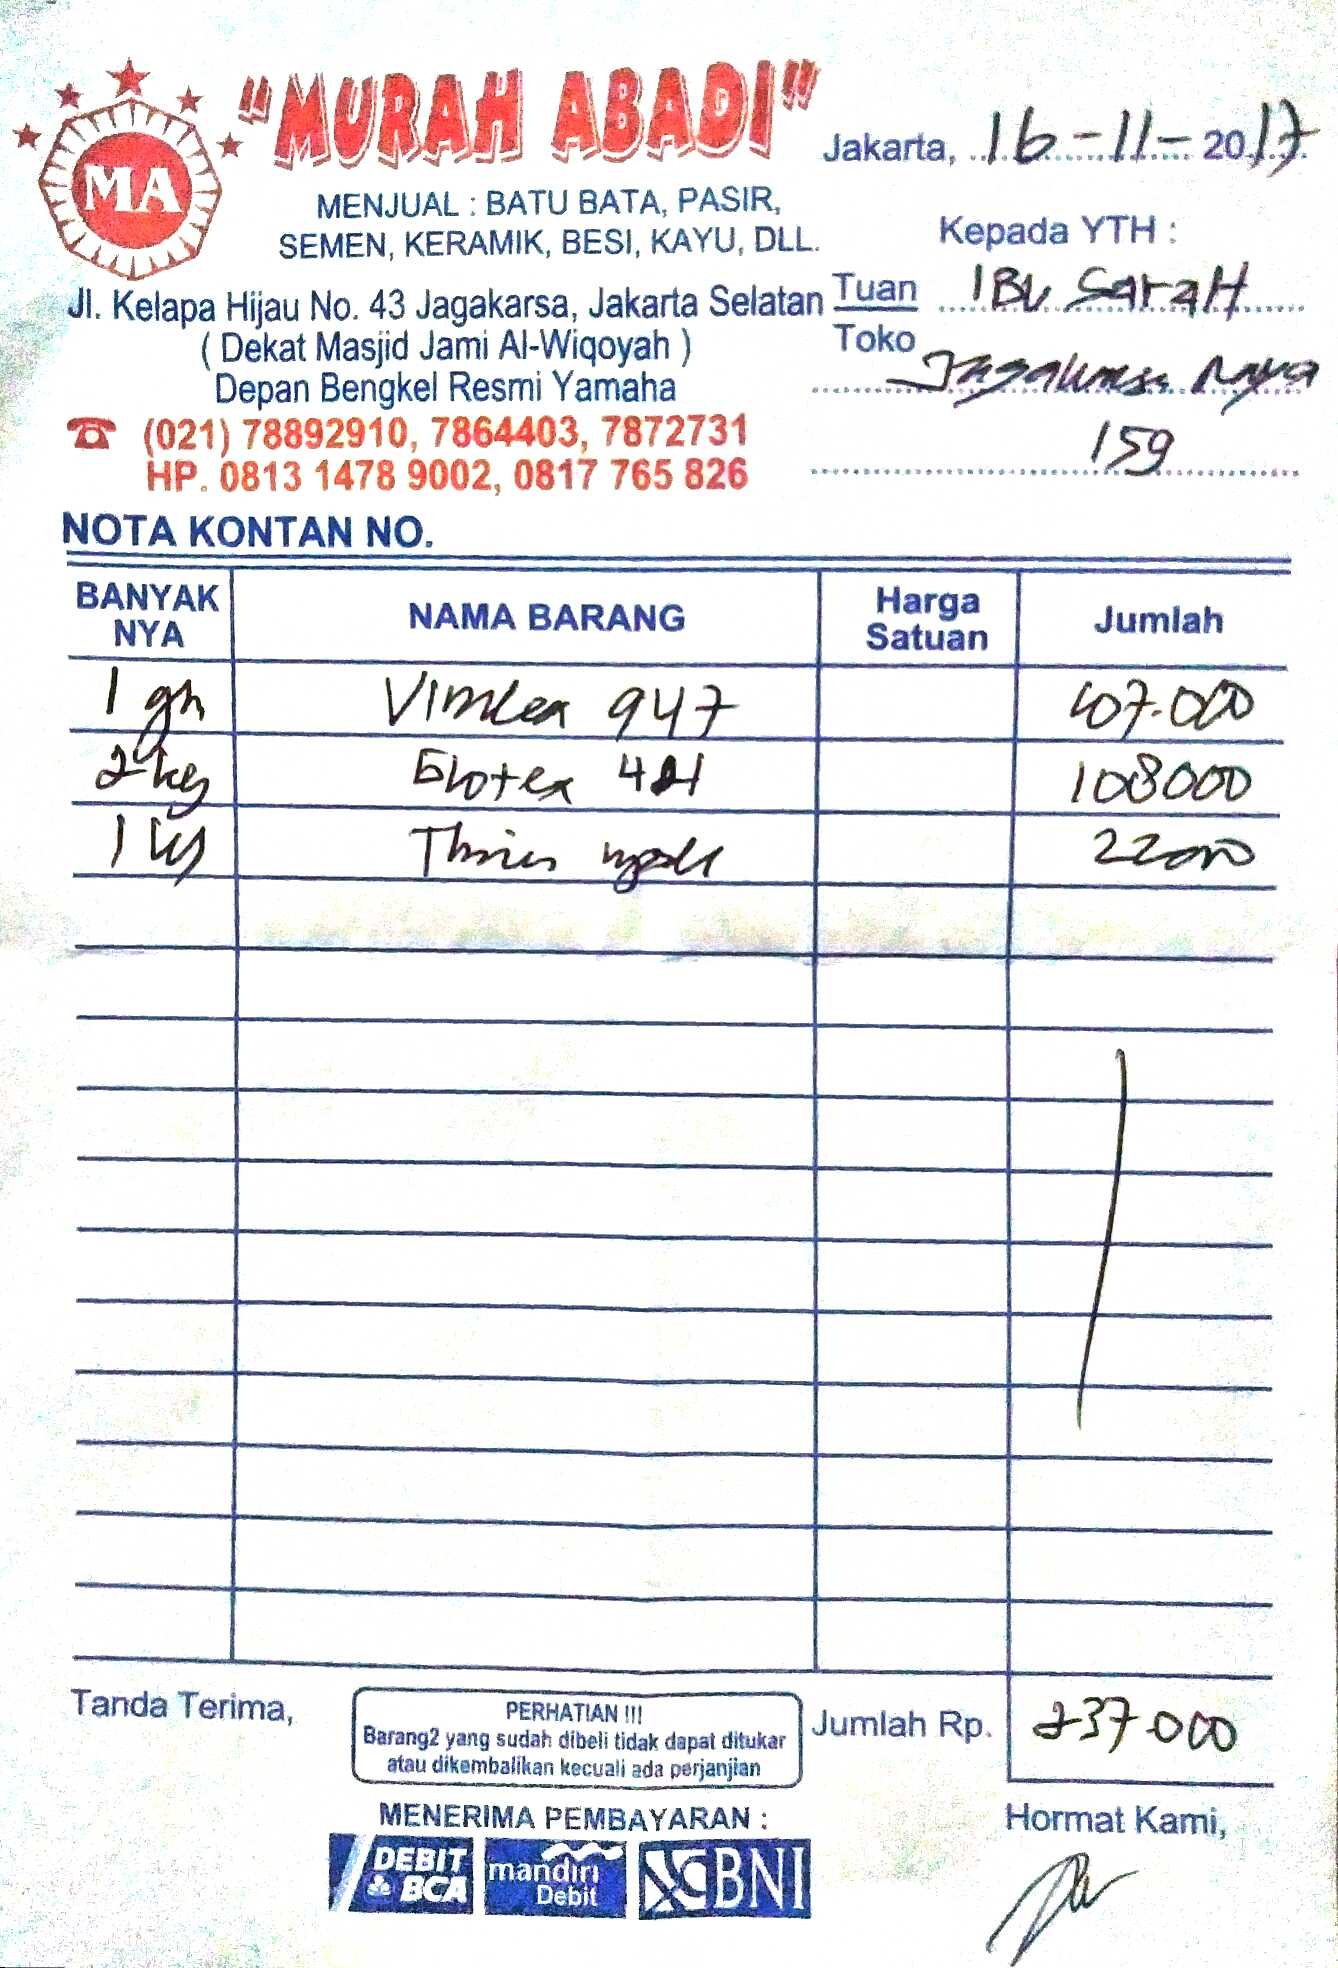 MA
"MURAH ABADI"
MENJUAL : BATU BATA, PASIR,
SEMEN, KERAMIK, BESI, KAYU, DLL.
Jl. Kelapa Hijau No. 43 Jagakarsa, Jakarta Selatan
( Dekat Masjid Jami Al-Wiqoyah )
Depan Bengkel Resmi Yamaha
(021) 78892910, 7864403, 7872731
HP. 0813 1478 9002, 0817 765 826
Jakarta, 16-11-2017
Kepada YTH :
Tuan IBU SaraH
Toko
Jagakarsa Raya
159
NOTA KONTAN NO.
BANYAK NYA NAMA BARANG Harga Satuan Jumlah
1 gln Vinilex 947 107.000
2 kg Glotex 108000
1 kg Thiner 22000
Tanda Terima,
PERHATIAN !!!
Barang2 yang sudah dibeli tidak dapat ditukar
atau dikembalikan kecuali ada perjanjian
Jumlah Rp. 237000
MENERIMA PEMBAYARAN :
DEBIT BCA
mandiri Debit
BNI
Hormat Kami,